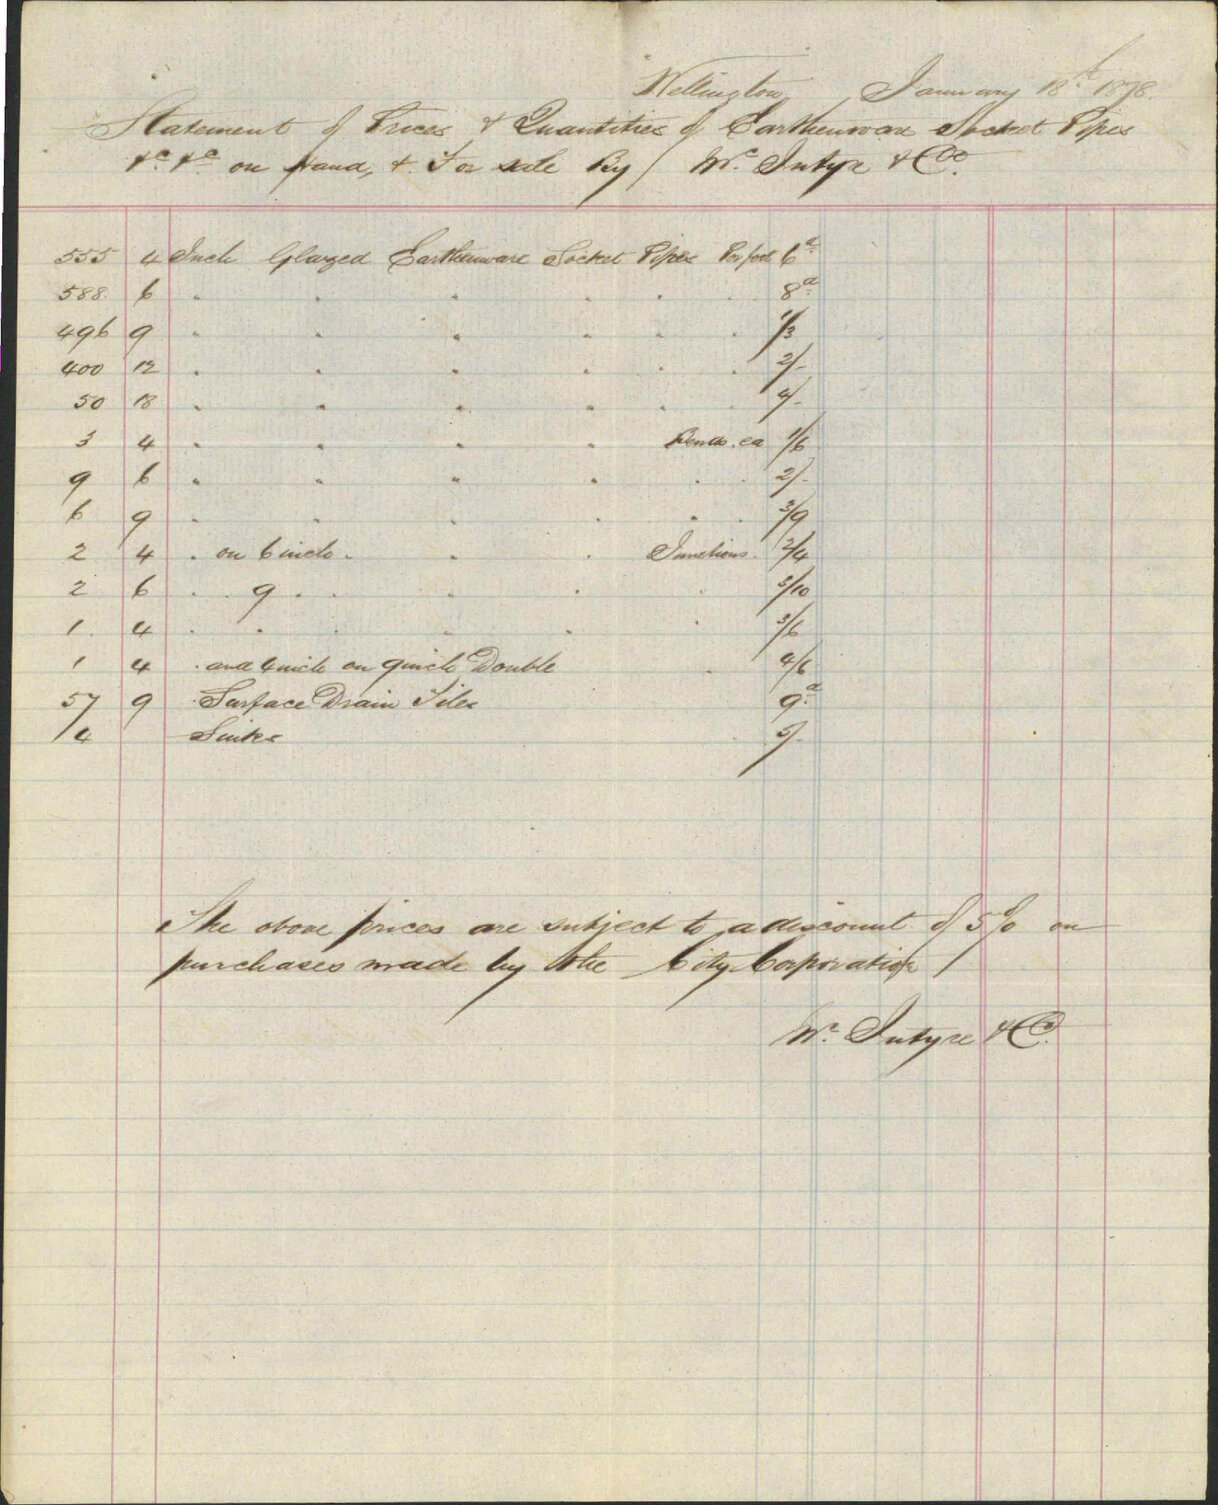 Wellington January 18th 1878.
Statement of Prices & Quantities of Earthenware Socket Pipes
&c. &c. on Hand, & For sale By Mc. Intyre & Co.
555 4 Inch Glazed Earthenware Socket Pipes Per foot 6d
588. 6 " " " " " " 8d
496 9 " " " " " " 1/3
400 12 " " " " " " 2/-
50 18 " " " " " " 4/-
3 4 " " " " Bends. ea 1/6
9 6 " " " " " " 2/-
6 9 " " " " " " 3/9
2 4 " on 6 inch " " " Junctions. 2/4
2 6 " " 9 " " " " "
1. 4 " " " " " " 3/6
1 4 " and 6 inch on 9 inch Double " 4/6
57 9 " Surface Drain Tiles 9d
4 Sinks 5/-
The above prices are subject to a discount of 5% on
purchases made by the City Corporation
Mc. Intyre & Co.